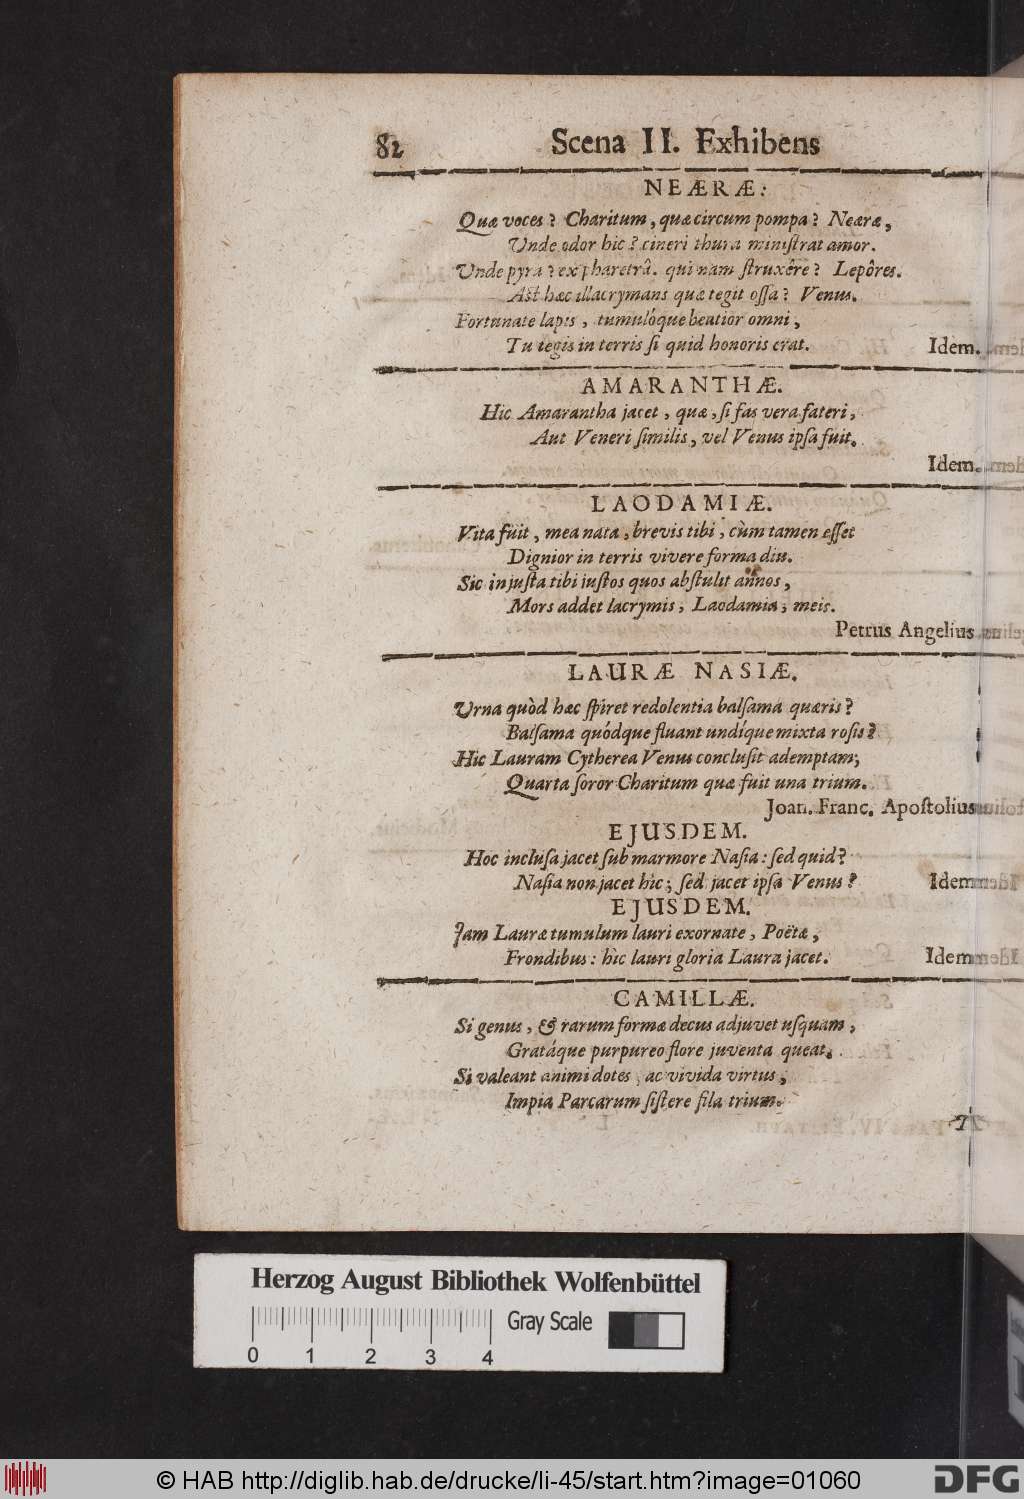 82 Scena II. Exhibens
NEÆRÆ:
Quæ voces? Charitum, quæ circum pompa? Neæræ,
Unde odor hic? cineri thura miniſtrat amor.
Unde pyra? ex pharetrâ. qui nam ſtruxêre? Lepôres.
Aſt hæc illacrymans quæ tegit oſſa? Venus.
Fortunate lapis, tumulóque beatior omni,
Tu tegis in terris ſi quid honoris erat.
Idem.
AMARANTHÆ.
Hic Amarantha jacet, quæ, ſi fas vera fateri,
Aut Veneri ſimilis, vel Venus ipſa fuit.
Idem.
LAODAMIÆ.
Vita fuit, mea nata, brevis tibi, cùm tamen eſſet
Dignior in terris vivere forma diu.
Sic injuſta tibi juſtos quos abſtulit annos,
Mors addet lacrymis, Laodamia, meis.
Petrus Angelius
LAURÆ NASIÆ.
Urna quòd hæc ſpiret redolentia balſama quæris?
Balſama quódque fluant undíque mixta roſis?
Hic Lauram Cytherea Venus concluſit ademptam;
Quarta ſoror Charitum quæ fuit una trium.
Joan. Franc. Apoſtolius
EJUSDEM.
Hoc incluſa jacet ſub marmore Naſia: ſed quid?
Naſia non jacet hìc; ſed jacet ipſa Venus?
Idem
EJUSDEM.
Jam Lauræ tumulum lauri exornate, Poëtæ,
Frondibus: hìc lauri gloria Laura jacet.
Idem
CAMILLÆ.
Si genus, & rarum formæ decus adjuvet uſquam,
Gratáque purpureo flore juventa queat.
Si valeant animi dotes, ac vivida virtus,
Impia Parcarum ſiſtere fila trium.
Herzog August Bibliothek Wolfenbüttel
Gray Scale
0 1 2 3 4
© HAB http://diglib.hab.de/drucke/li-45/start.htm?image=01060
DFG